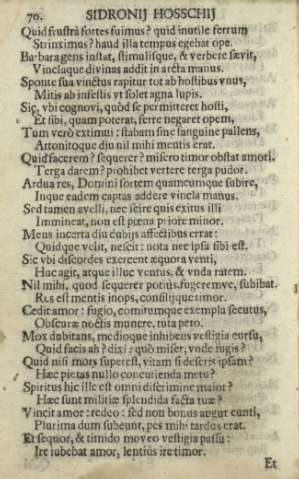 70. SIDRONIJ HOSSCHIJ
Quid frustrà fortes fuimus? quid inutile ferrum
Strinximus? haud illa tempus egebat ope.
Barbara gens instat, stimulisque, & verbere sævit,
Vinclaque divinas addit in arcta manus.
Sponte sua vinctus rapitur tot ab hostibus vnus,
Mitis ab infestis vt solet agna lupis.
Sic, vbi cognovi, quòd se permitteret hosti,
Et sibi, quam poterat, ferre negaret opem,
Tum verò extimui: stabam sine sanguine pallens,
Attonitoque diu nil mihi mentis erat.
Quid facerem? sequerer? misero timor obstat amori.
Terga darem? prohibet vertere terga pudor.
Ardua res, Domini sortem quamcumque subire,
Inque eadem captas addere vincla manus.
Sed tamen avelli, nec scire quis exitus illi
Immineat, non est pœna priore minor.
Mens incerta diu dubijs affectibus errat:
Quidque velit, nescit: nota nec ipsa sibi est.
Sic vbi discordes exercent æquora venti,
Huc agit, atque illuc ventus, & vnda ratem.
Nil mihi, quod sequerer potiùs, fugeremve, subibat.
Res est mentis inops, consilijque timor.
Cedit amor: fugio, comitumque exempla secutus,
Obscuræ noctis munere, tuta peto.
Mox dubitans, medioque inhibens vestigia cursu,
Quid facis ah? dixi: quò miser, vnde fugis?
Quid nisi mors superest, vitam si deseris ipsam?
Hæc pietas nullo concutienda metu?
Spiritus hic ille est omni discrimine maior?
Hæc sunt militiæ splendida facta tuæ?
Vincit amor: redeo: sed non bonus augur eunti,
Plurima dum subeunt, pes mihi tardus erat.
Et sequor, & timido moveo vestigia passu:
Ire iubebat amor, lentiùs ire timor.
Et